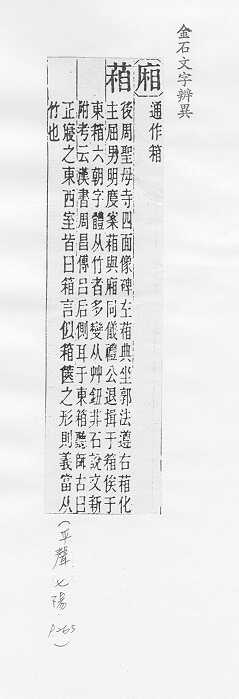 金石文字辨異
〔廂〕通作箱
葙
後周聖母寺四面像碑左葙典坐郭法遵右葙化
主屈男明度案葙與廂同儀禮公退揖于箱俟于
東箱六朝字體从竹者多變从艸鈕非石說文新
附考云漢書周昌傳呂后側耳于東箱聽師古曰
正寢之東西室皆曰箱言似箱篋之形則義當从
竹也
(平聲七陽 p.265)